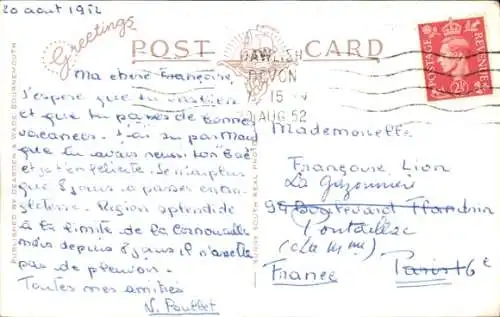 20 août 1952
Greetings
POST CARD
DAWLISH
DEVON
15
AUG 52
POSTAGE REVENUE
2½
Ma chère Françoise,
J'espère que tu vas bien
et que tu passes de bonnes
vacances. J'ai su par Maud
que tu avais réussi ton "Bac"
et je t'en félicite. Je n'ai plus
que 8 jours à passer en An-
gleterre. Région splendide
à la limite de la Cornouaille
mais depuis 8 jours il n'arrête
pas de pleuvoir.
Toutes mes amitiés
N.
Mademoiselle
Françoise Lion
La
99 Boulevard Flandrin
Pontaillac
France
Paris 16e
PUBLISHED BY DEARDEN & WADE, BOURNEMOUTH
SUNNY SOUTH REAL PHOTO